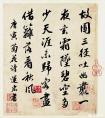 故園三徑吐幽叢一
夜玄霜墜碧空多
少天涯未歸客盡
借籬落看秋風
唐寅菊花詩